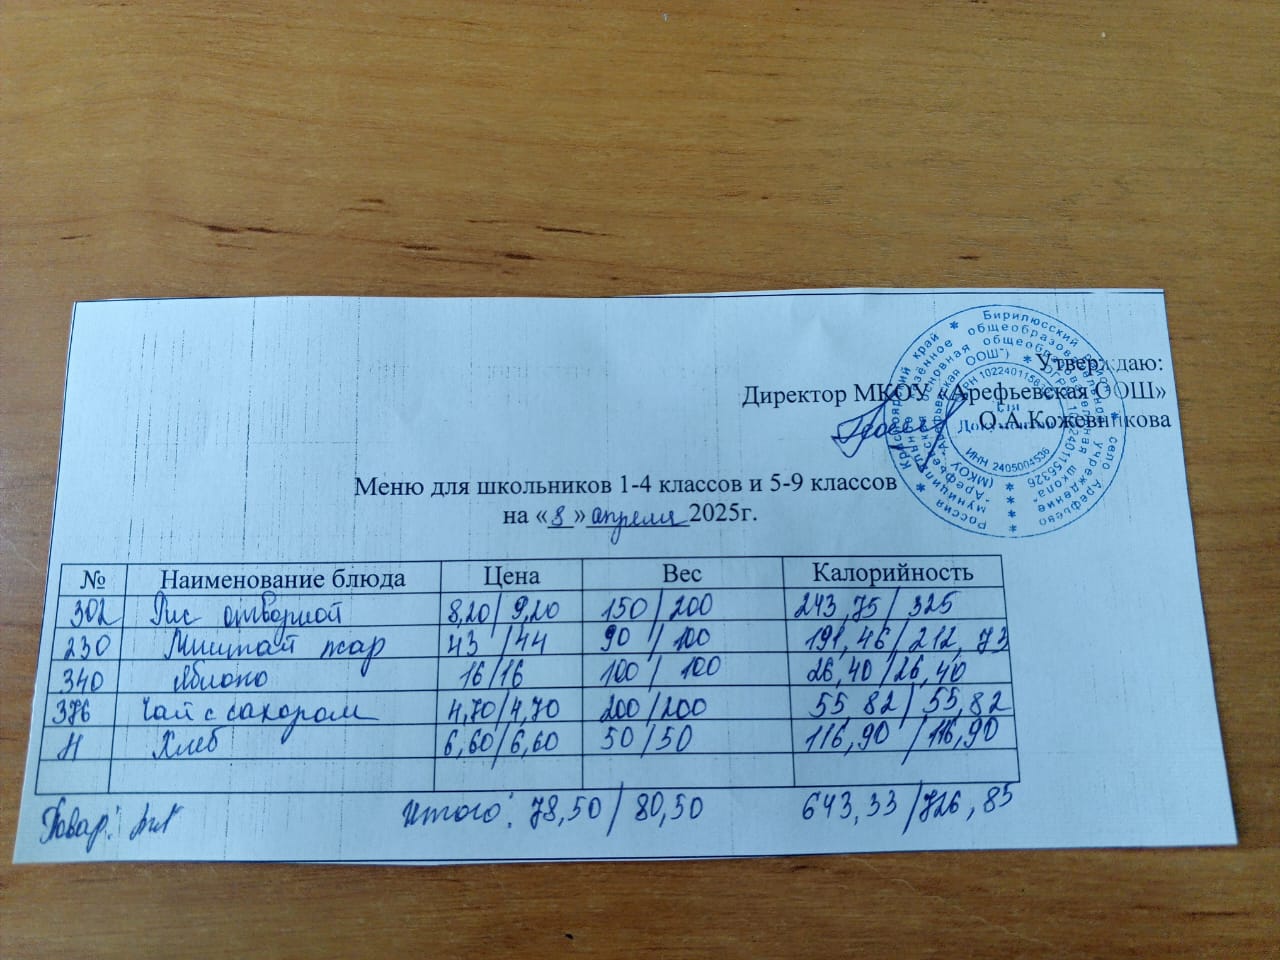 Утверждаю:
Директор МКОУ «Арефьевская ООШ»
О.А.Кожевникова
Россия ✱ Красноярский край ✱ Бирилюсский район ✱ село Арефьево
Для
Документов
ИНН 2405004536
Меню для школьников 1-4 классов и 5-9 классов
на «8» апреля 2025г.
№ Наименование блюда Цена Вес Калорийность
302 Рис отварной 8,20/9,20 150/200 243,75/325
230 Минтай жар 43/44 90/100 191,46/212,73
340 Яблоко 16/16 100/100 26,40/26,40
376 Чай с сахаром 4,70/4,70 200/200 55 82/55,82
Н Хлеб 6,60/6,60 50/50 116,90/116,90
Повар: Итого: 78,50/80,50 643,33/726,85